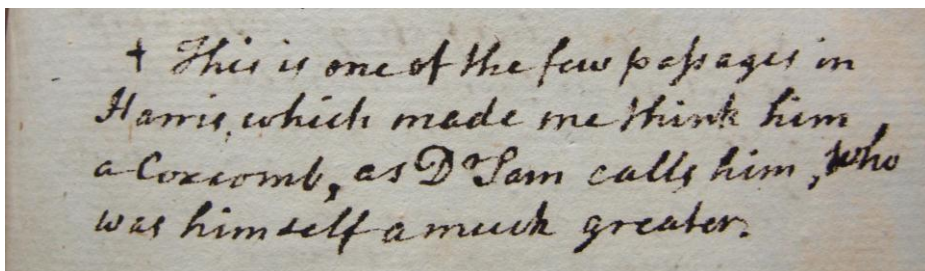 † This is one of the few paſsages in
Harris, which made me think him
a Coxcomb, as Dr Sam calls him, who
was himself a much greater.